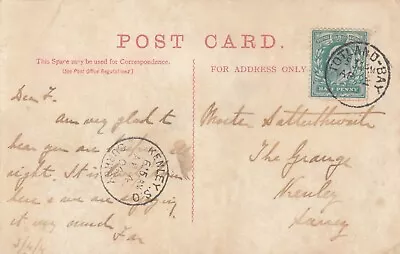 POST CARD.
This Space may be used for Correspondence.
(See Post Office Regulations.)
FOR ADDRESS ONLY
HALFPENNY
TOTLAND-BAY
KENLEY S.O
SURREY
Dear F.
am very glad to
hear you are
right. It is
here & we are enjoying
it very much
Far
3/4/
Master Satterthwaite
The Grange
Kenley
Surrey